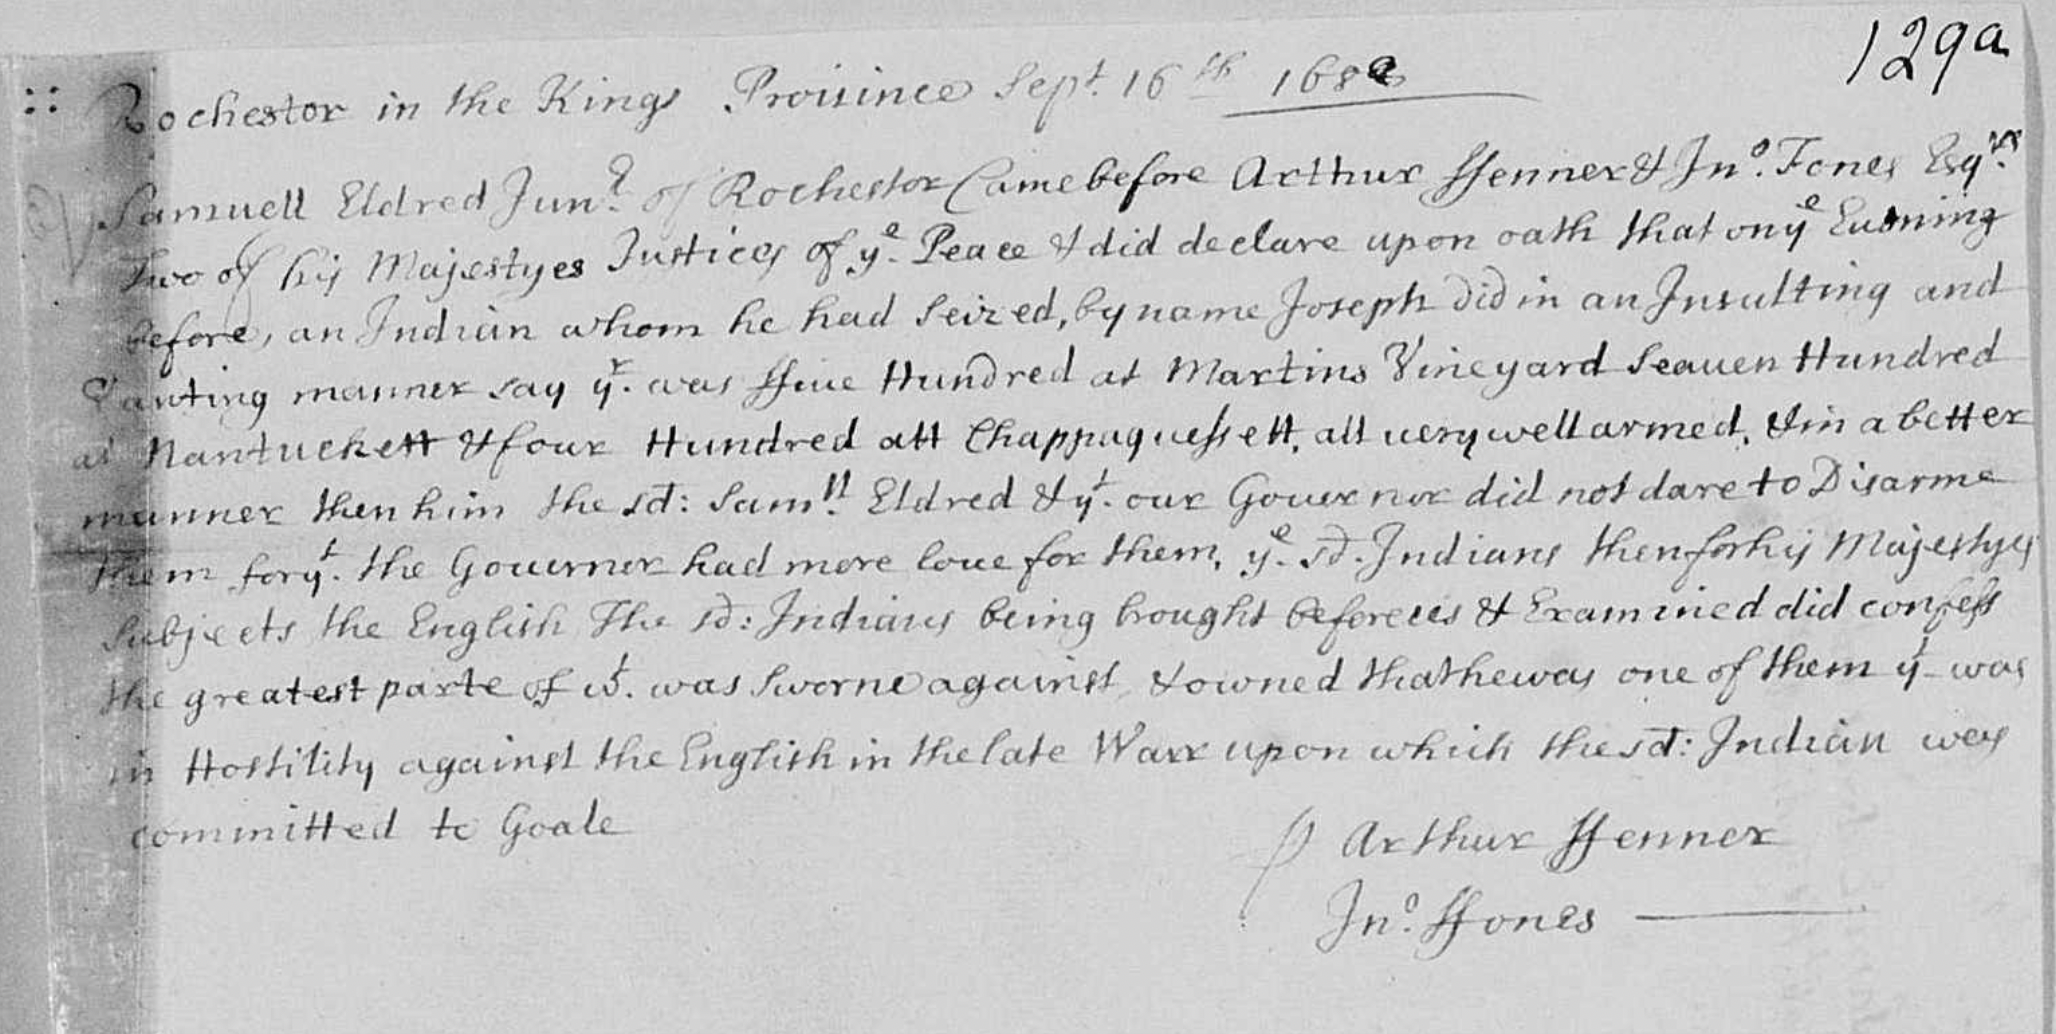 129a
Rochestor in the Kings Prouince Sept. 16th 1688
Samuell Eldred Junr. of Rochestor Came before Arthur ffenner & Jno. Fones Esqrs.
Two of his Majestyes Justices of ye. Peace & did declare upon oath that on ye Euening
before, an Indian whom he had seized, by name Joseph did in an Insulting and
Vanting manner say yr. was ffiue Hundred at Martins Vineyard Seauen Hundred
at Nantuckett & four Hundred att Chappaquessett, all uery well armed, & in a better
manner then him the sd: Samll. Eldred & yt. our Gouernor did not dare to Disarme
them for yt. the Gouernor had more loue for them, ye. sd. Indians then for his Majestyes
Subjects the English The sd: Indians being brought before us & Examined did confess
the greatest parte of wt. was Sworne against & owned that he was one of them yt was
in Hostility against the English in the late Warr upon which the sd: Indian was
committed to Goale
Arthur ffenner
Jno. ffones